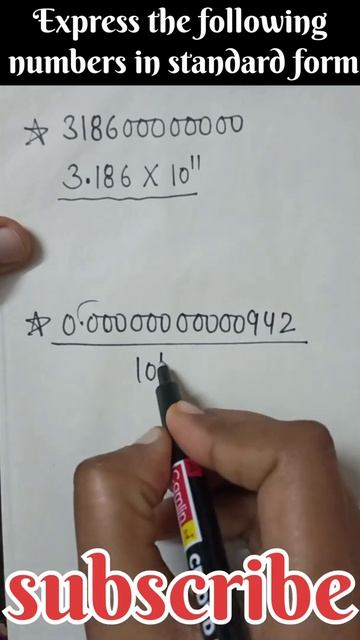 Express the following
numbers in standard form
☆ 318600000000
3.186 X 10¹¹
☆ 0.00000000000942
10
Camlin
subscribe